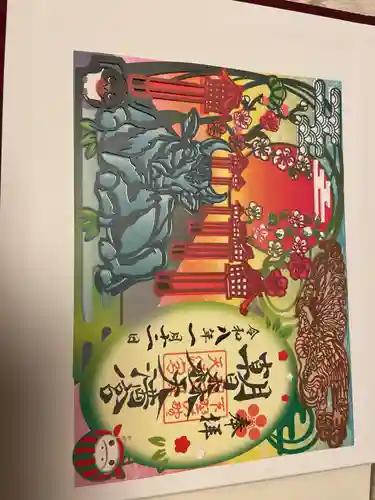 奉拝
朝日森天満宮
令和八年一月十二日